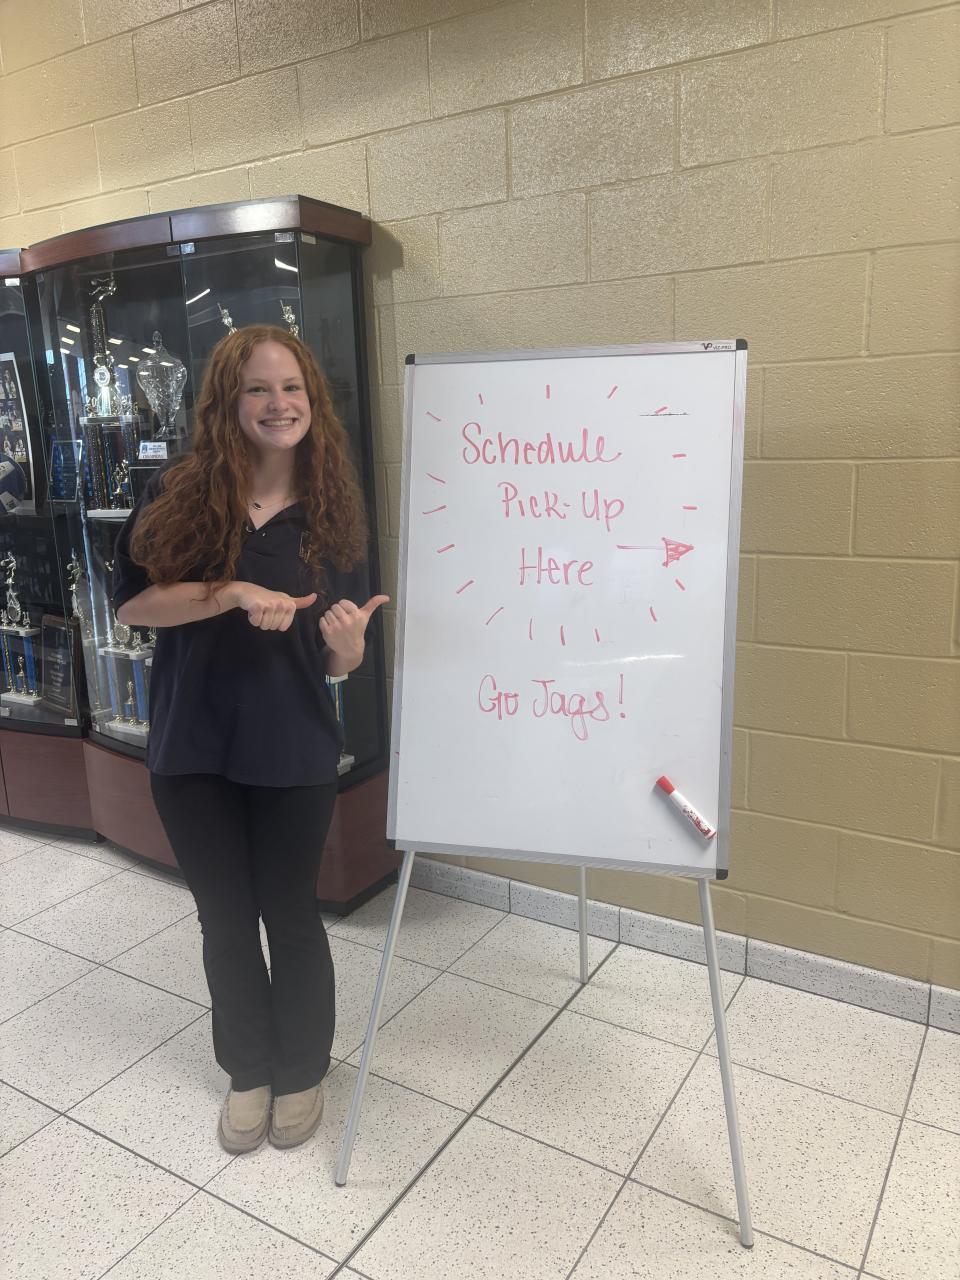 VIZ-PRO
Schedule
Pick-Up
Here
Go Jags!